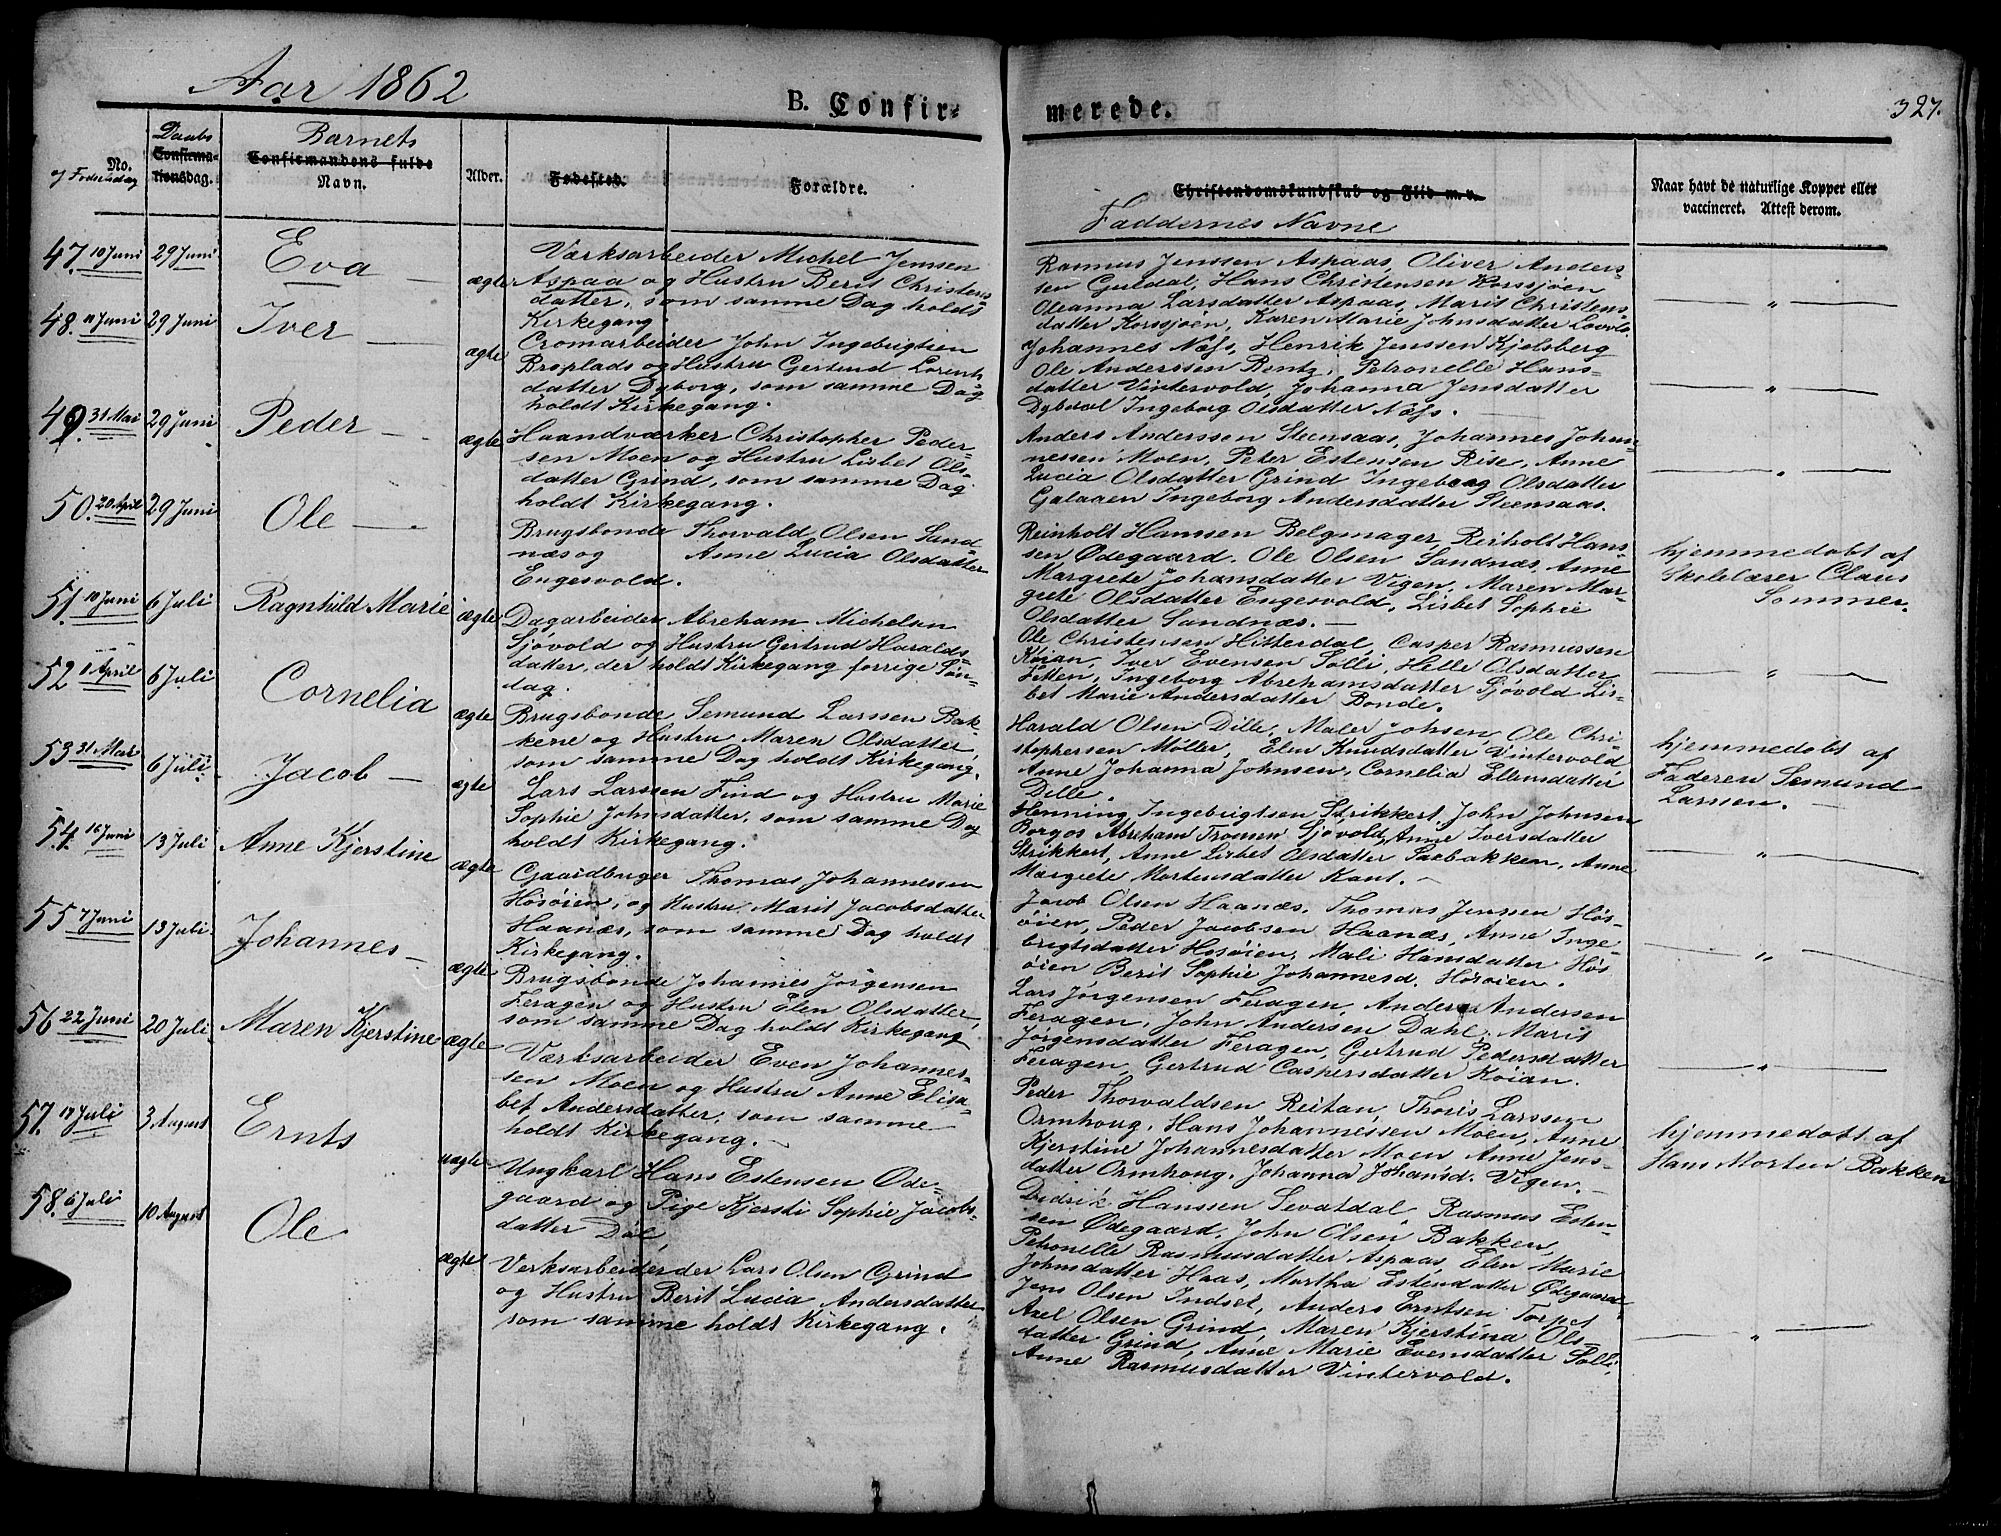 Aar 1862
B. Confir-
merede.
327.
No. og Fødselsdag
Daabs
Confirma-
tionsdag.
Barnets
Confirmandens fulde
Navn.
Alder.
Fødested.
Forældre.
Christendomskundskab og Flid m. v.
Faddernes Navne
Naar havt de naturlige Kopper eller
vaccineret. Attest derom.
47. 10 Juni 29 Juni Eva — ægte
Værksarbeider Michel Jenssen
Aspaa og Hustru Berit Christens-
datter, som samme Dag holdt
Kirkegang.
Rasmus Jenssen Aspaas, Oliver Anders-
sen Guldal, Hans Christensen Korssjøen
Oleanna Larsdatter Aspaas, Marit Christens-
datter Korssjøen, Karen Marie Johnsdatter
— " —
48. 11 Juni 29 Juni Iver — ægte
Cromarbeider John Ingebrigtsen
Broplads og Hustru Gertrud Lorents
datter Dyborg, som samme Dag
holdt Kirkegang.
Johannes Næss, Henrik Jenssen Kjelsberg
Ole Anderssen Bentz, Petronelle Hans-
datter Vintervold, Johanna Jensdatter
Dybdal Ingeborg Olsdatter Næss.
— " —
49. 31 Mai 29 Juni Peder — ægte
Haandværker Christopher Peder-
sen Moen og Hustru Lisbet Ols-
datter Grind, som samme Dag
holdt Kirkegang.
Anders Anderssen Steensaas, Johannes Johan-
nessen Moen, Peter Estensen Rise, Anne
Lucia Olsdatter Grind Ingeborg Olsdatter
Galaaen Ingeborg Andersdatter Steensaas.
— " —
50. 20 April 29 Juni Ole —
Brugsbonde Thorvald Olsen Sand-
næs og Anne Lucia Olsdatter
Engesvold.
Reinholt Hanssen Belgmager, Reiholt Hans-
sen Ødegaard. Ole Olsen Sandnæs, Anne
Margrete Johansdatter Vigen, Maren Mar-
grete Olsdatter Engesvold, Lisbet Sophie
Olsdatter Sandnæs. —
hjemmedøbt af
Skolelærer Claus
Sommer.
51. 10 Juni 6 Juli Ragnhild Marie ægte
Dagarbeider Abreham Michelsen
Sjøvold og Hustru Gertrud Haralds-
datter, der holdt Kirkegang forrige Søn-
dag.
Ole Christensen Hitterdal, Casper Rasmussen
Køian, Iver Evensen Solli, Helle Olsdatter
Fetten, Ingeborg Abrehamsdatter Sjøvold Lis-
bet Marie Andersdatter Bonde.
— " —
52 1 April 6 Juli Cornelia ægte
Brugsbonde Semund Larssen Bak-
kene og Hustru Maren Olsdatter
som samme Dag holdt Kirkegang.
Harald Olsen Dille, Maler Johsen, Ole Chri-
stophersen Møller, Elen Knudsdatter Vintervold
Anne Johanna Johnsen, Cornelia Ellensdatter
Dille.
hjemmedøbt af
Faderen Semund
Larssen.
53 31 Mai 6 Juli. Jacob — ægte
Lars Larssen Find og Hustru Marie
Sophie Johnsdatter, som samme Dag
holdt Kirkegang.
Henning Ingebrigtsen Strikkert, John Johnsen
Borgos Abreham Sjøvold, Anne Iversdatter
Strikkert, Anne Lisbet Olsdatter Saxbakken, Anne
Margrete Mortensdatter Kant. —
— " —
54. 16 Juni 13 Juli Anne Kjerstine ægte
Gaardbruger Thomas Johannessen
Høsøien, og Hustru Marit Jacobsdatter
Haanæs, som samme Dag holdt
Kirkegang.
Jacob Olsen Haanæs, Thomas Jenssen Høs-
øien, Peder Jacobsen Haanæs, Anne Inge
brigtsdatter Høsøien, Mali Hansdatter Høs
øien Berit Sophie Johannesd. Høsøien.
— " —
55 7 Juni 13 Juli. Johannes — ægte
Brugsbonde Johannes Jørgensen
Feragen og Hustru Elen Olsdatter,
som samme Dag holdt Kirkegang
Lars Jørgensen Feragen, Anders Andersen
Feragen, John Andersen Dahl, Marit
Jørgensdatter Feragen, Gertrud Pedersdatter
Feragen, Gertrud Caspersdatter Køian.
— " —
56 22 Juni 20 Juli. Maren Kjerstine ægte
Værksarbeider Even Johannes-
sen Moen og Hustru Anne Elisa-
bet Andersdatter, som samme
holdt Kirkegang. —
Peder Thorvaldsen Reitan, Thoris Larssen
Ormhoug, Hans Johannessen Moen, Anne
Kjerstine Johannesdatter Moen Anne Jens-
datter Ormhoug, Johanna Johansd. Vigen. —
57. 17 Juli 3 August Ernts uægte
Ungkarl Hans Estensen Øde-
gaard og Pige Kjersti Sophie Jacobs-
datter Døl,
Didrik Hanssen Sevatdal, Rasmus Esten-
sen Ødegaard, John Olsen Bakken,
Petronelle Rasmusdatter Aspaas, Elen Marie
Johnsdatter Haas, Martha Estensdatter Ødegaard
hjemmedøbt af
Hans Morten Bakken
58. 6 Juli 10 August Ole ægte
Verksarbeider Lars Olsen Grind
og Hustru Berit Lucia Andersdatter
som samme holdt Kirkegang.
Jens Olsen Indset, Anders Erntsen Torpet
Axel Olsen Grind, Maren Kjerstina Ols-
datter Grind, Anne Marie Evensdatter Solli,
Anne Rasmusdatter Vintervold.
— " —